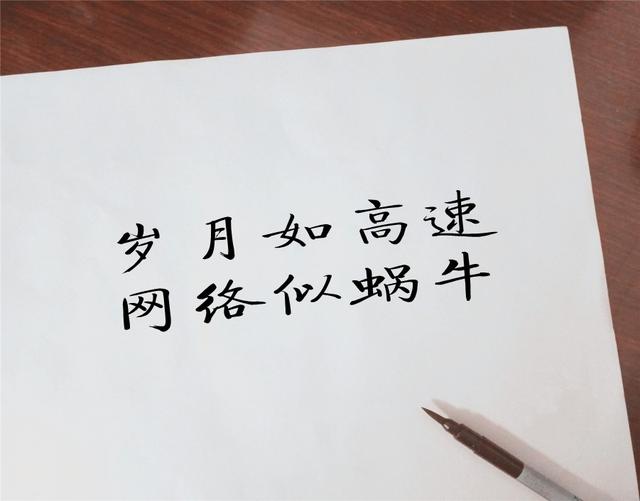 岁月如高速
网络似蜗牛